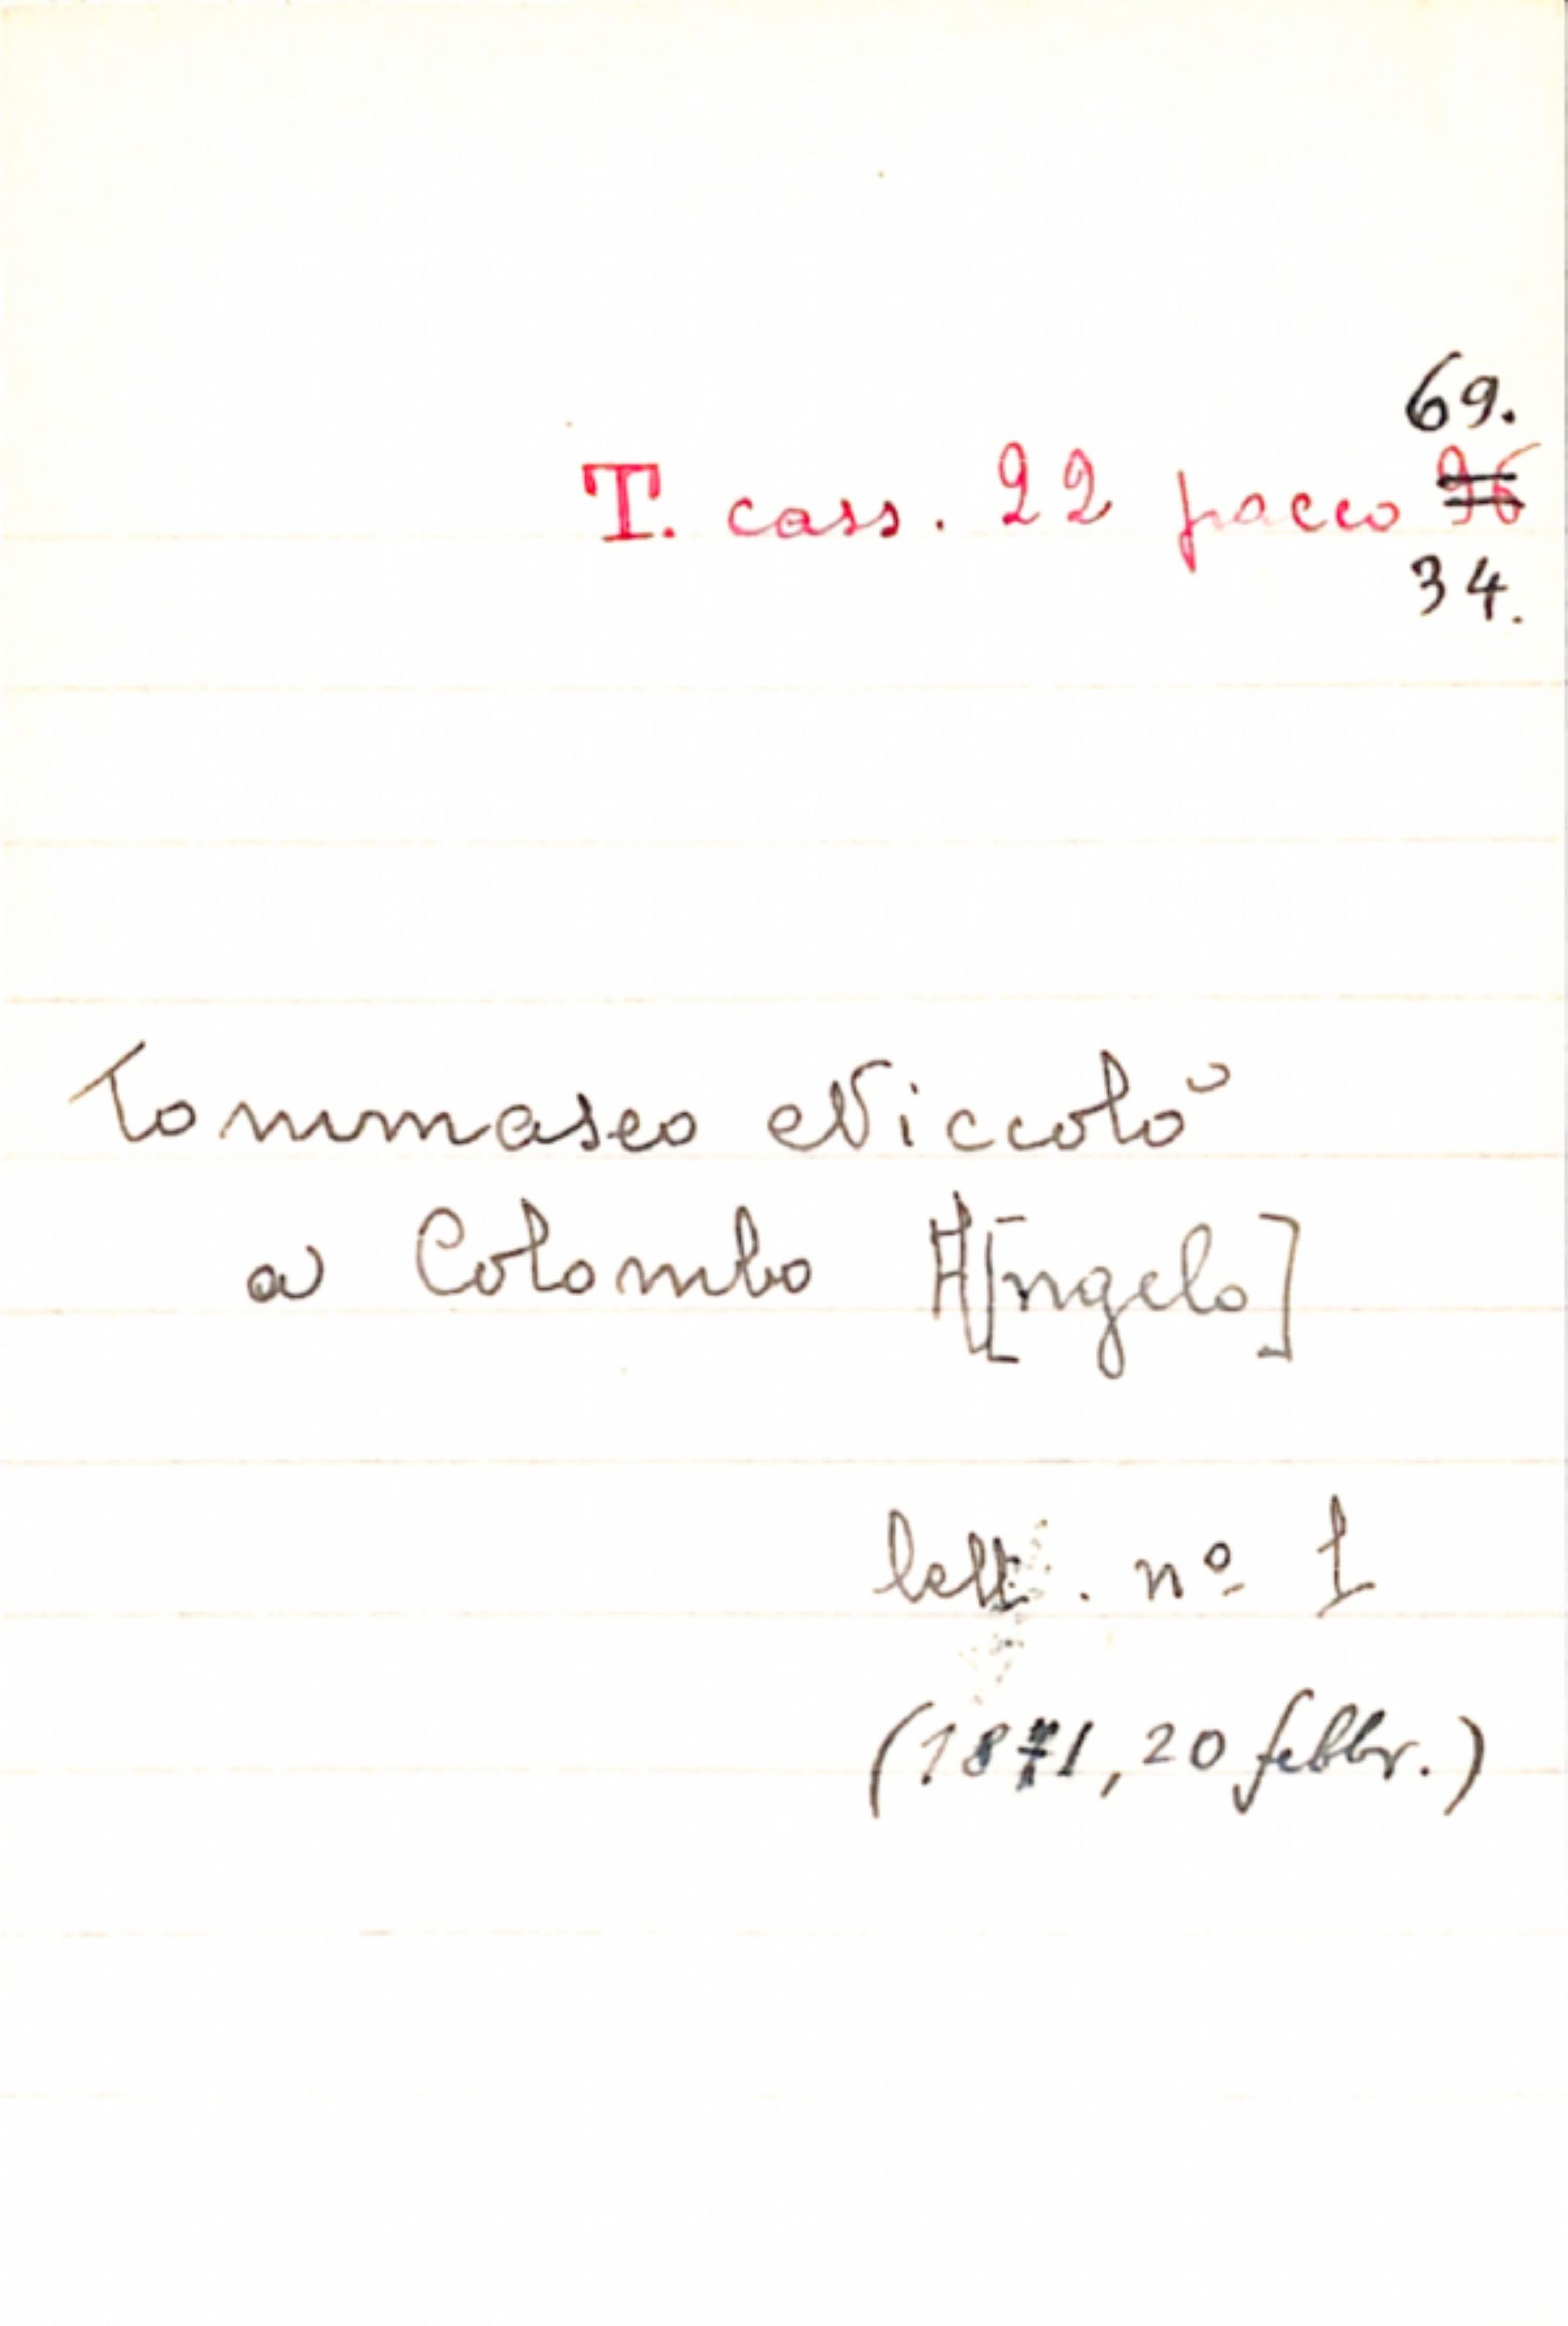 69.
T. cass. 22 pacco
34.
Tommaseo Niccolò
a Colombo A[ngelo]
lett. nº 1
(1871, 20 febbr.)